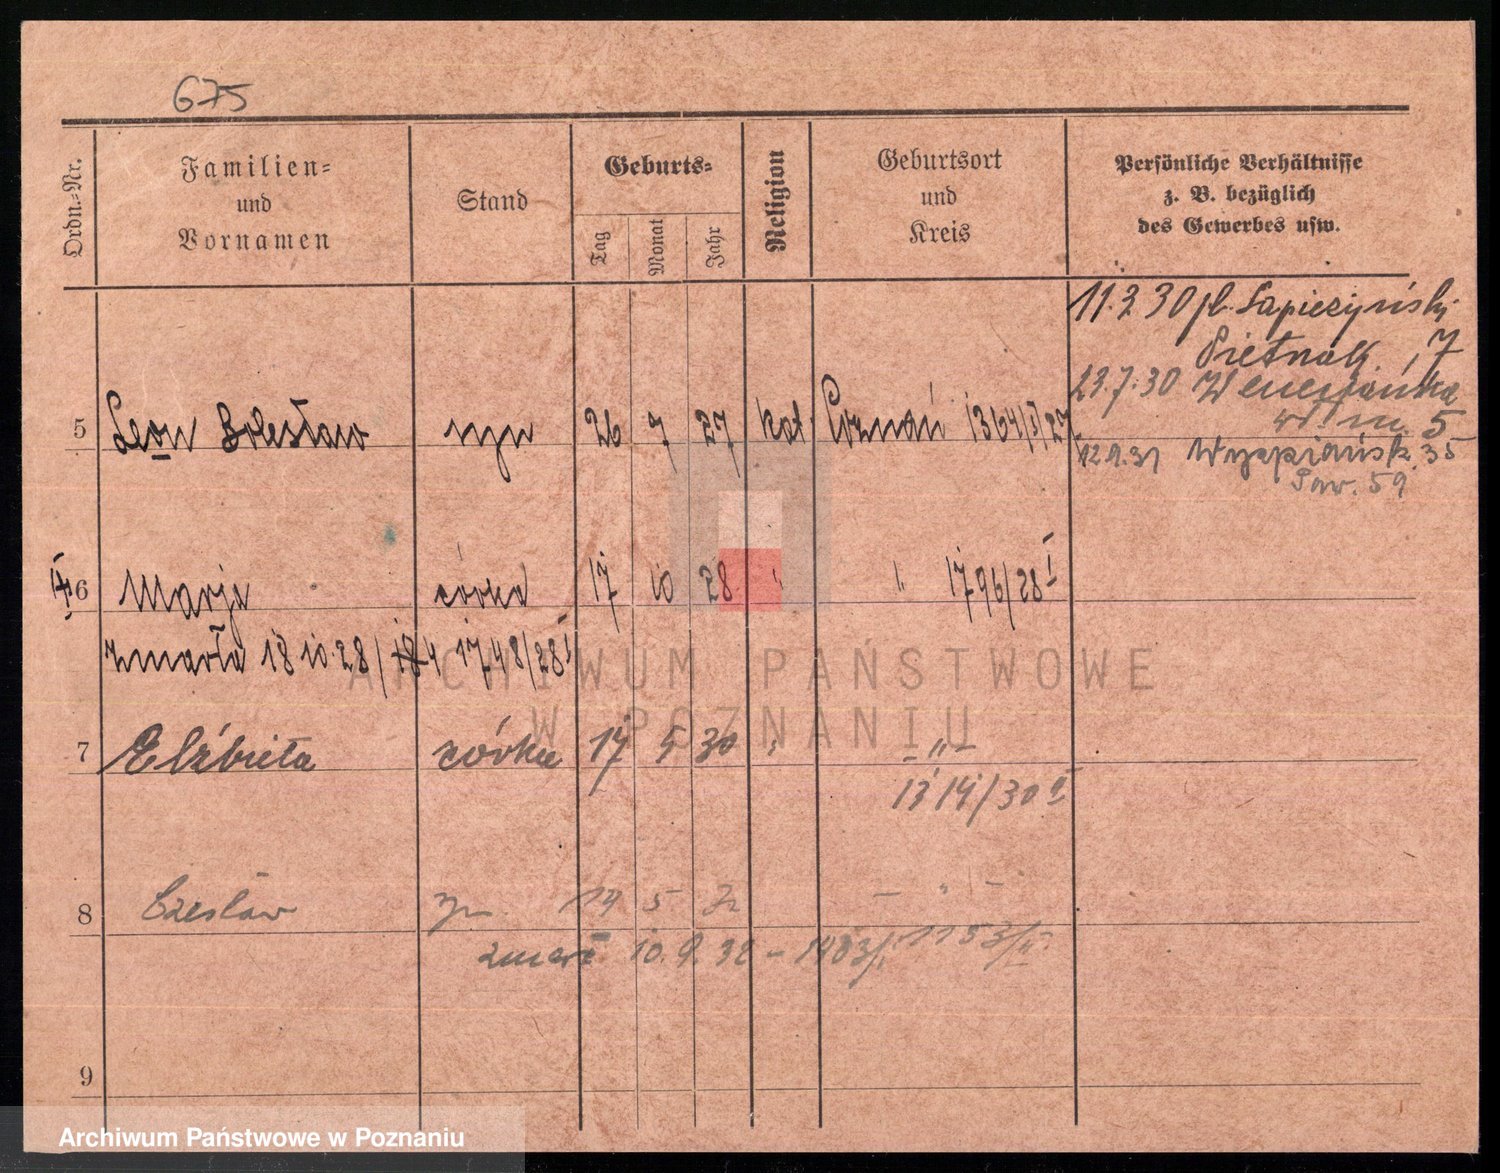 675
Ordn.-Nr.
Familien-
und
Vornamen
Stand
Geburts-
Tag
Monat
Jahr
Religion
Geburtsort
und
Kreis
Persönliche Verhältnisse
z. B. bezüglich
des Gewerbes usw.
11.2 30 pl. Sapieżyński
7
23.7.30
m. 5
5 Leon Bolesław syn 26 7 27 kat. Poznań 1364/I/27
12.9.31 35
59
6 Marja córka 17 10 28 " " 1796/28 I
zmarła 18 10.28/ 1748/28 I
ARCHIWUM PAŃSTWOWE
W POZNANIU
7 Elżbieta córka 17 5 30 " -"-
1314/30 II
8 Czesław syn 14 5 32 - " -
zmarł 10.9.32 - 1153/II
9
Archiwum Państwowe w Poznaniu